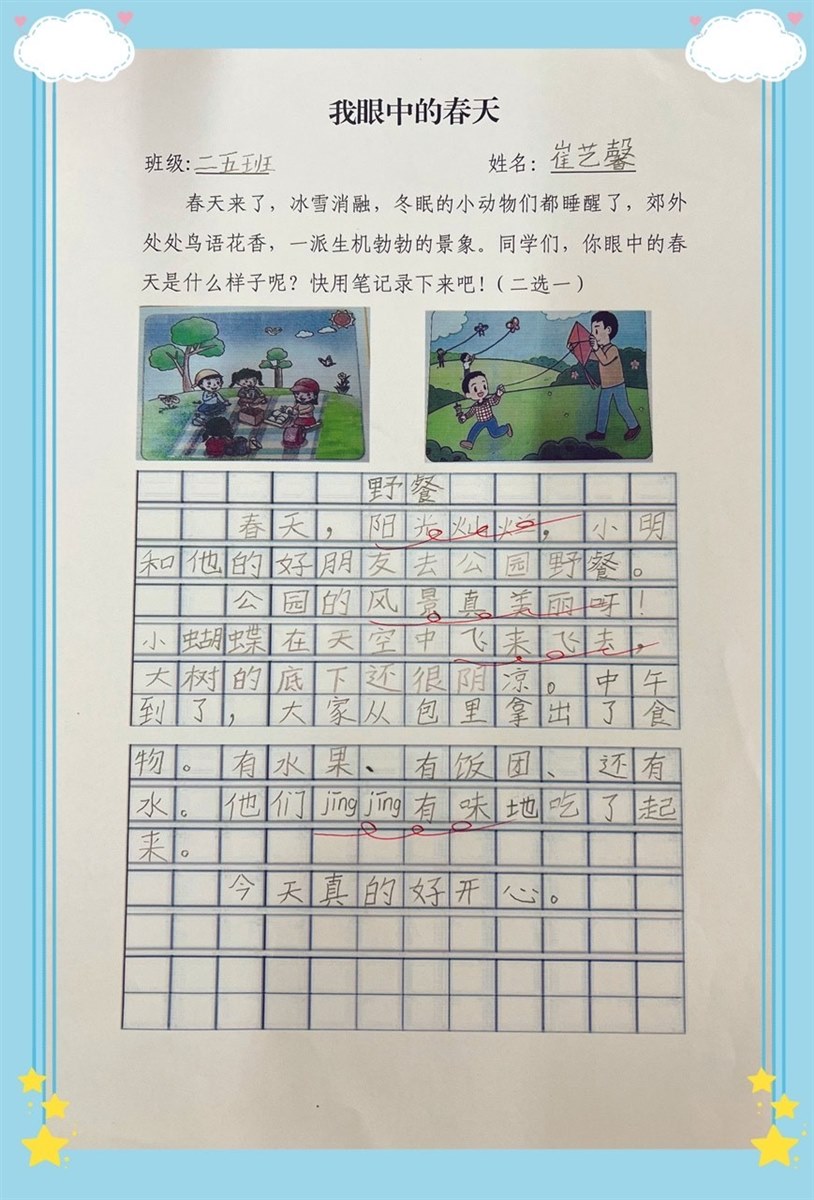 我眼中的春天
班级:二五班 姓名:崔艺馨
春天来了，冰雪消融，冬眠的小动物们都睡醒了，郊外
处处鸟语花香，一派生机勃勃的景象。同学们，你眼中的春
天是什么样子呢？快用笔记录下来吧！(二选一)
野餐
春天，阳光灿烂，小明
和他的好朋友去公园野餐。
公园的风景真美丽呀！
小蝴蝶在天空中飞来飞去，
大树的底下还很阴凉。中午
到了，大家从包里拿出了食
物。有水果、有饭团、还有
水。他们jīng jīng有味地吃了起
来。
今天真的好开心。